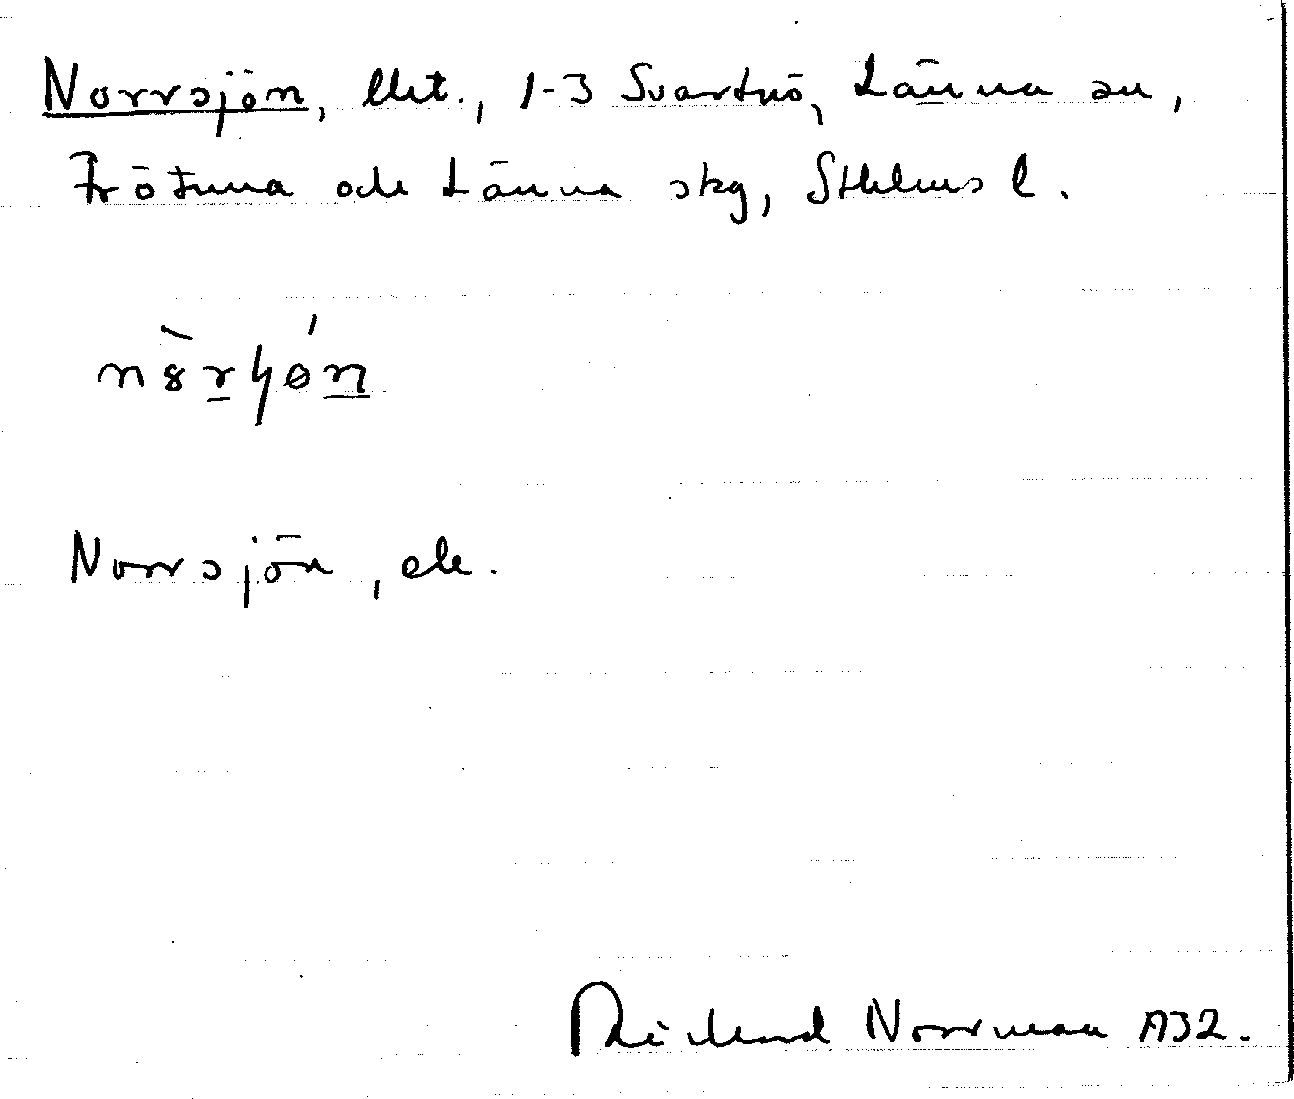 Norrsjön, lht., 1-3 Svartnö, Länna sn,
Frötuna och Länna skg, Sthlms l.
Norrsjön, ek.
Rickard Norrman A32.